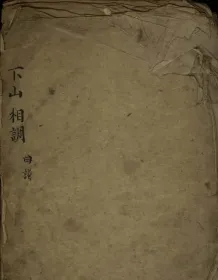 下山相調 曲譜